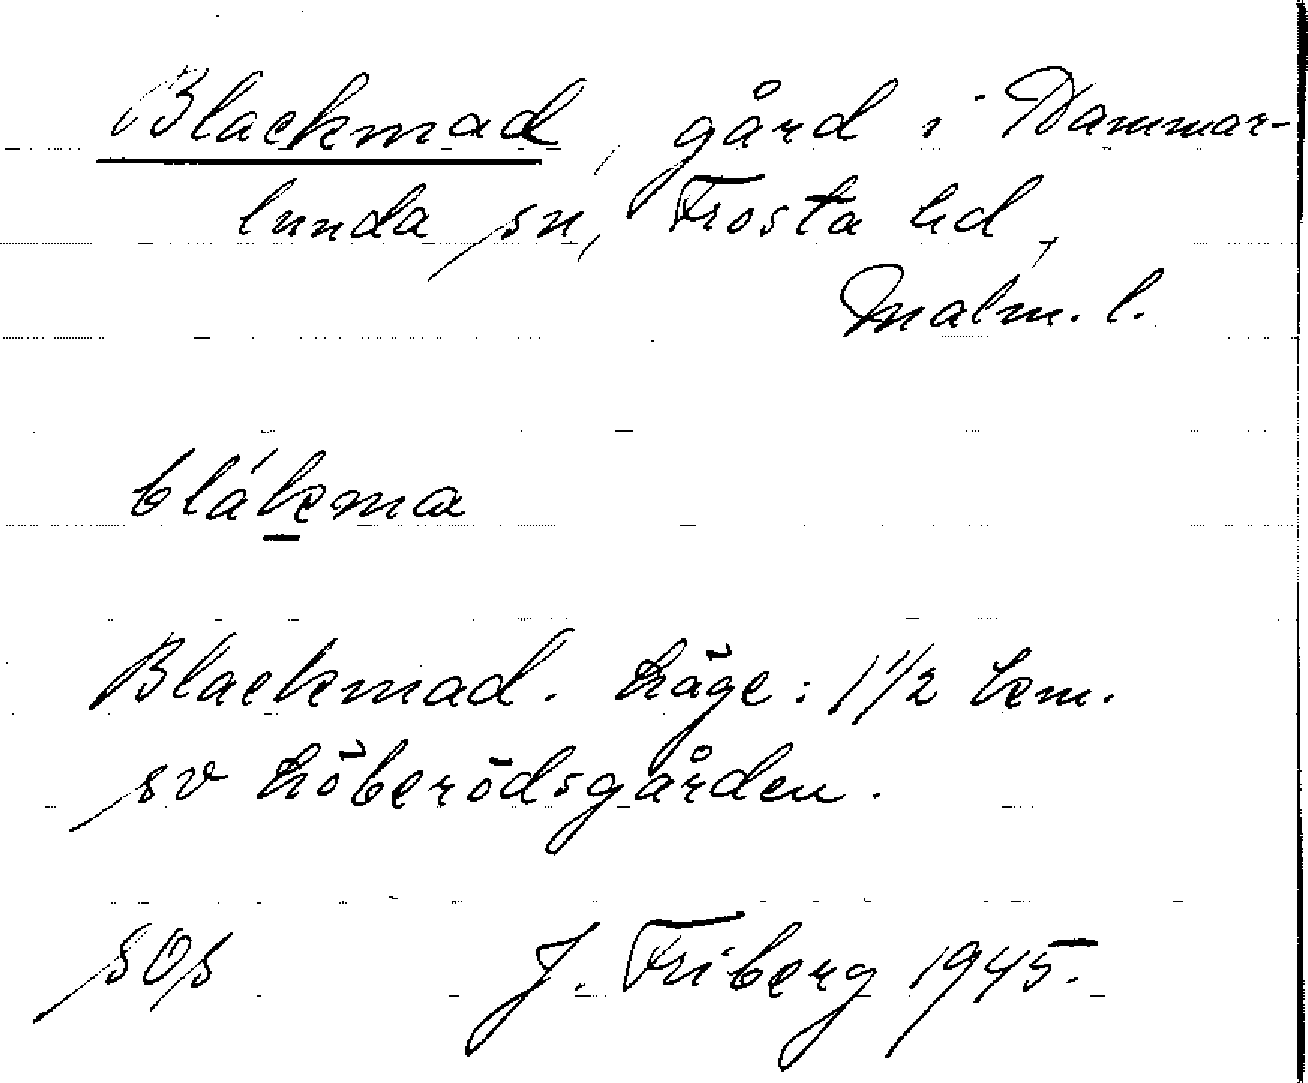 Blackmad, gård i Hammar-
lunda sn, Frosta hd,
Malm. l.
blákma
Blackmad. Läge: 1 1/2 km.
sv Löberödsgården.
sOs J. Friberg 1945.